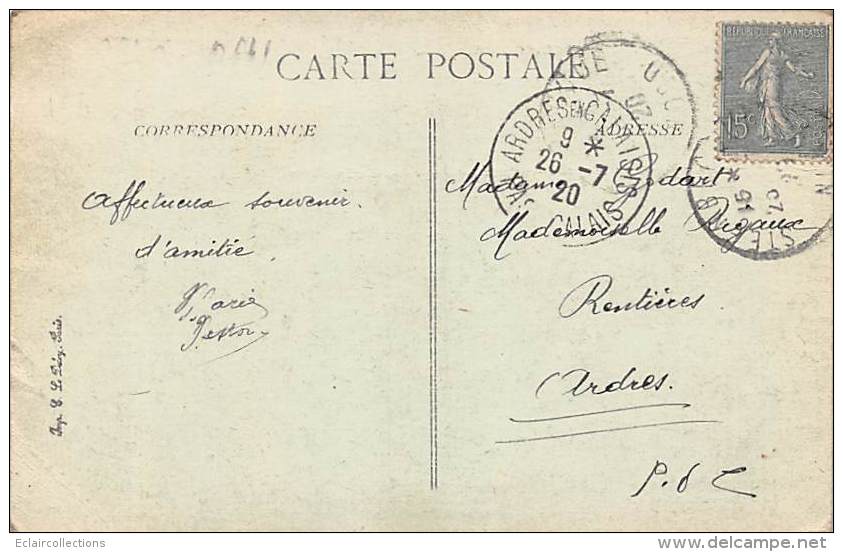 CARTE POSTALE
CORRESPONDANCE
ADRESSE
RÉPUBLIQUE FRANÇAISE
15c
ARDRES EN CALAISIS
9 *
26 -7
20
PAS DE CALAIS
Affectueux souvenir
d'amitié.
Marie
Madame Godart
Mademoiselle Rigaux
Rentières
Ardres.
P. d C
Imp. E. Le Deley, Paris.
Eclaircollections
http://www.delcampe.net